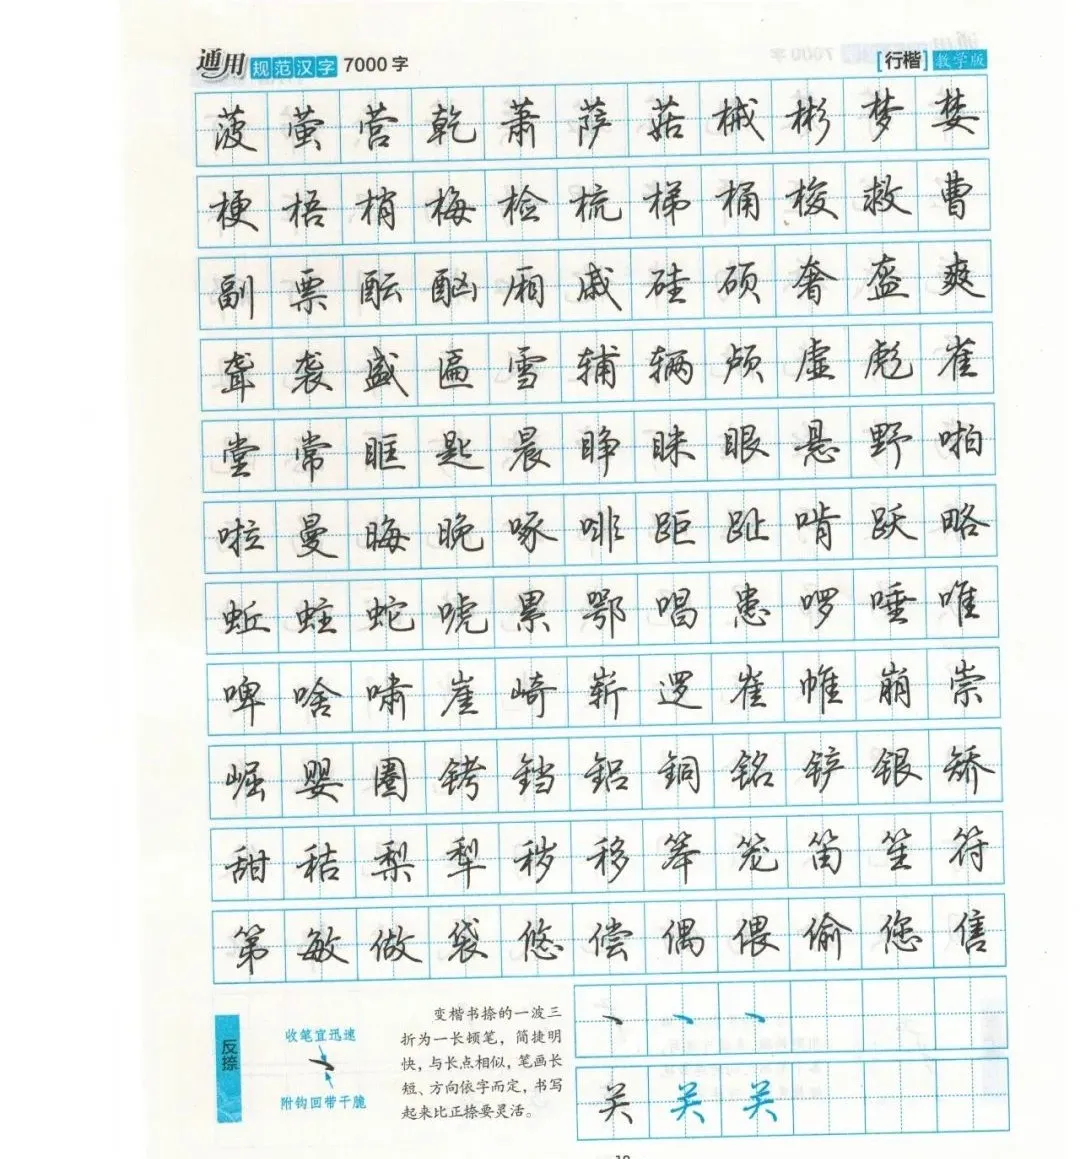 通用规范汉字7000字 [行楷]教学版
菠萤营乾萧萨菇械彬梦婪
梗梧梢梅检梳梯桶梭救曹
副票酝酗厢戚硅硕奢盔爽
聋袭盛匾雪辅辆颅虚彪雀
堂常眶匙晨睁眯眼悬野啪
啦曼晦晚啄啡距趾啃跃略
蚯蛀蛇唬累鄂唱患啰唾唯
啤啥啸崖崎崭逻崔帷崩崇
崛婴圈铐铛铝铜铭铲银矫
甜秸梨犁秽移笨笼笛笙符
第敏做袋悠偿偶偎偷您售
反捺
收笔宜迅速
附钩回带干脆
变楷书捺的一波三
折为一长顿笔，简捷明
快，与长点相似，笔画长
短、方向依字而定，书写
起来比正捺要灵活。
关关关